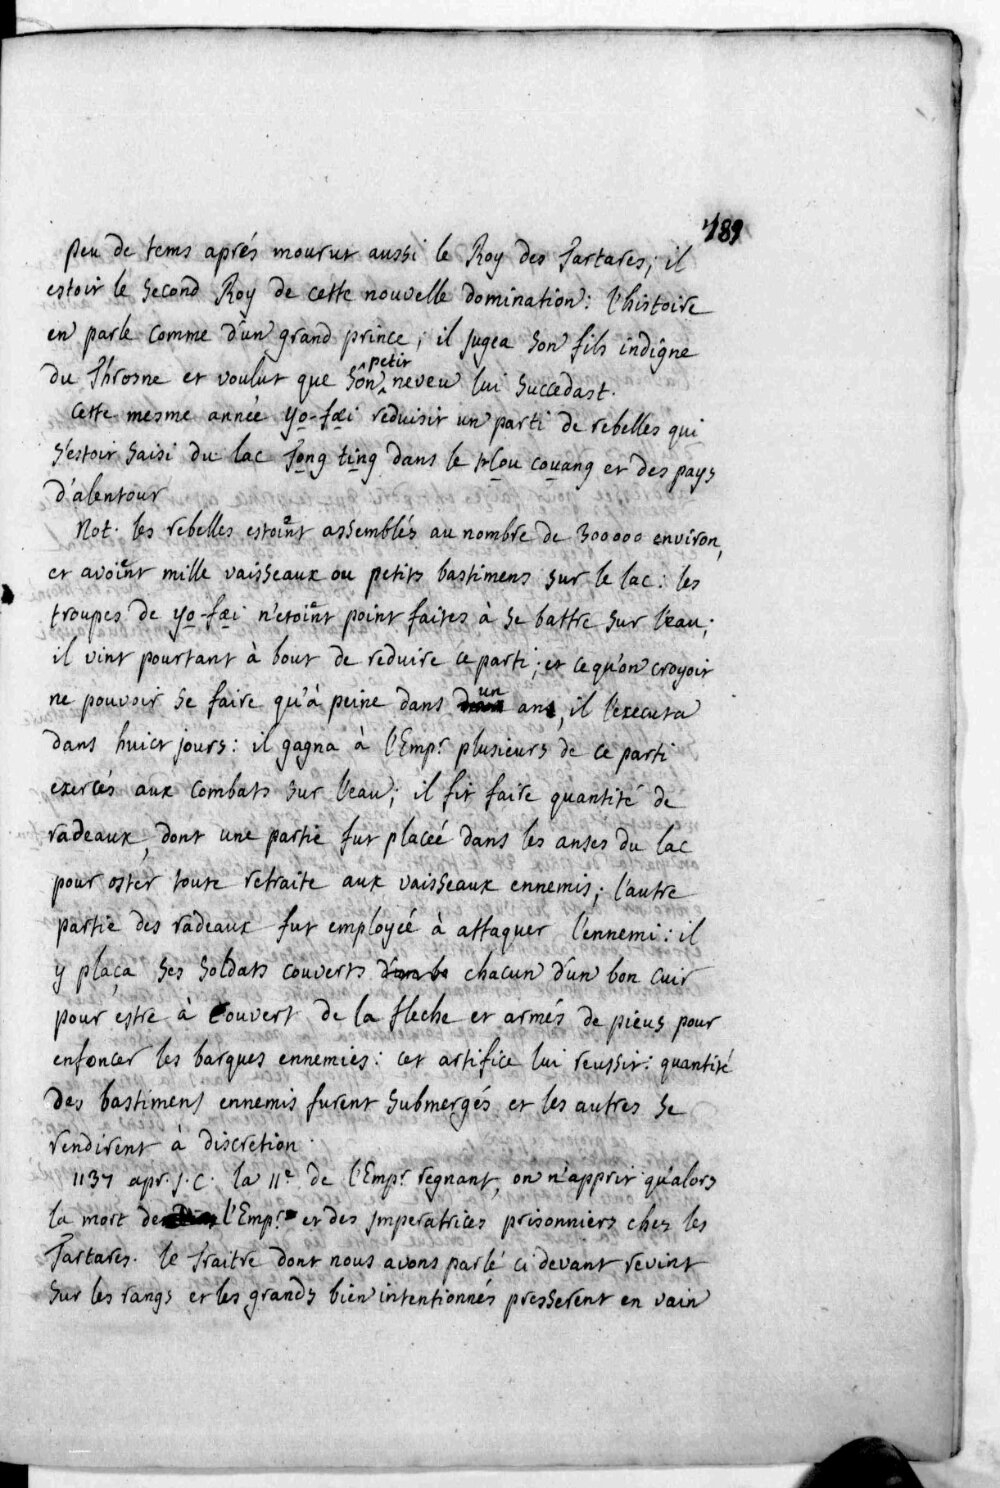 189
peu de tems aprés mourut aussi le Roy des Tartares; il
estoit le second Roy de cette nouvelle domination: l'histoire
en parle comme d'un grand prince; il jugea son fils indigne
du Throsne et voulut que son petit neveu lui succedast.
Cette mesme année yo-fœi reduisit un parti de rebelles qui
s'estoit saisi du lac Tong ting dans le hou couang et des pays
d'alentour
Not. les rebelles estoient assemblés au nombre de 300000 environ,
et avoient mille vaisseaux ou petits bastimens sur le lac: les
troupes de yo-fœi n'etoient point faites à se battre sur l'eau;
il vint pourtant à bout de reduire ce parti; et ce qu'on croyoit
ne pouvoir se faire qu'à peine dans un an, il l'executa
dans huict jours: il gagna à l'Empr. plusieurs de ce parti
exercés aux combats sur l'eau; il fit faire quantité de
radeaux, dont une partie fut placeé dans les anses du lac
pour oster toute retraite aux vaisseaux ennemis; l'autre
partie des radeaux fut employeé à attaquer l'ennemi: il
y plaça ses soldats couverts chacun d'un bon cuir
pour estre à couvert de la fleche et armés de pieus pour
enfoncer les barques ennemies: cet artifice lui reussit: quantité
des bastimens ennemis furent submergés et les autres se
rendirent à discretion.
1137 apr. J.C. la 11e de l'Empr. regnant, on n'apprit qu'alors
la mort de l'Empr. et des Imperatrices prisonniers chez les
Tartares. le Traitre dont nous avons parlé ci devant revint
sur les rangs et les grands bien intentionnés presserent en vain